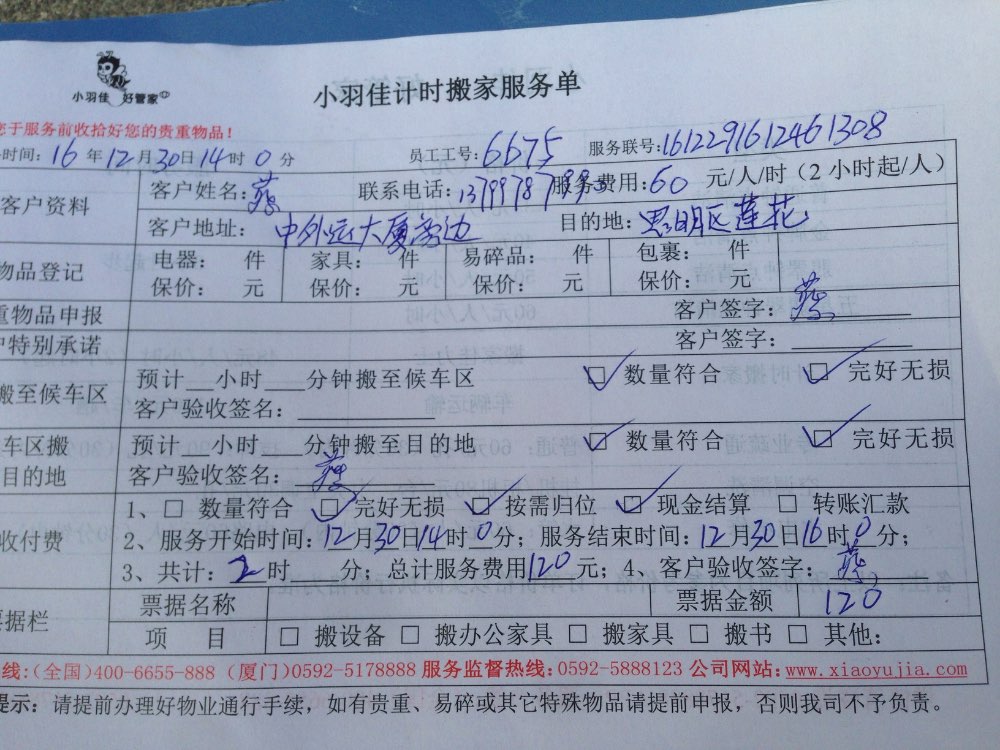 小羽佳 好管家
小羽佳计时搬家服务单
您于服务前收拾好您的贵重物品！
时间：16年12月30日14时0分 员工工号：6675 服务联号：1612291612461308
客户资料 客户姓名：蔡 联系电话： 服务费用：60元/人/时（2小时起/人）
客户地址：中外运大厦旁边 目的地：思明区莲花
物品登记 电器： 件 家具： 件 易碎品： 件 包裹： 件
保价： 元 保价： 元 保价： 元 保价： 元
重物品申报 客户签字：蔡
户特别承诺 客户签字：
搬至候车区 预计__小时___分钟搬至候车区 ☑ 数量符合 ☑ 完好无损
客户验收签名：
车区搬 预计 小时 分钟搬至目的地 ☑ 数量符合 ☑ 完好无损
目的地 客户验收签名：蔡
收付费 1、□ 数量符合 ☑ 完好无损 ☑ 按需归位 ☑ 现金结算 □ 转账汇款
2、服务开始时间：12月30日14时0分；服务结束时间：12月30日16时0分；
3、共计：2时 分；总计服务费用120元；4、客户验收签字：蔡
票据栏 票据名称 票据金额 120
项 目 □ 搬设备 □ 搬办公家具 □ 搬家具 □ 搬书 □ 其他：
线：(全国)400-6655-888 (厦门)0592-5178888 服务监督热线：0592-5888123 公司网站：www.xiaoyujia.com
提示：请提前办理好物业通行手续，如有贵重、易碎或其它特殊物品请提前申报，否则我司不予负责。